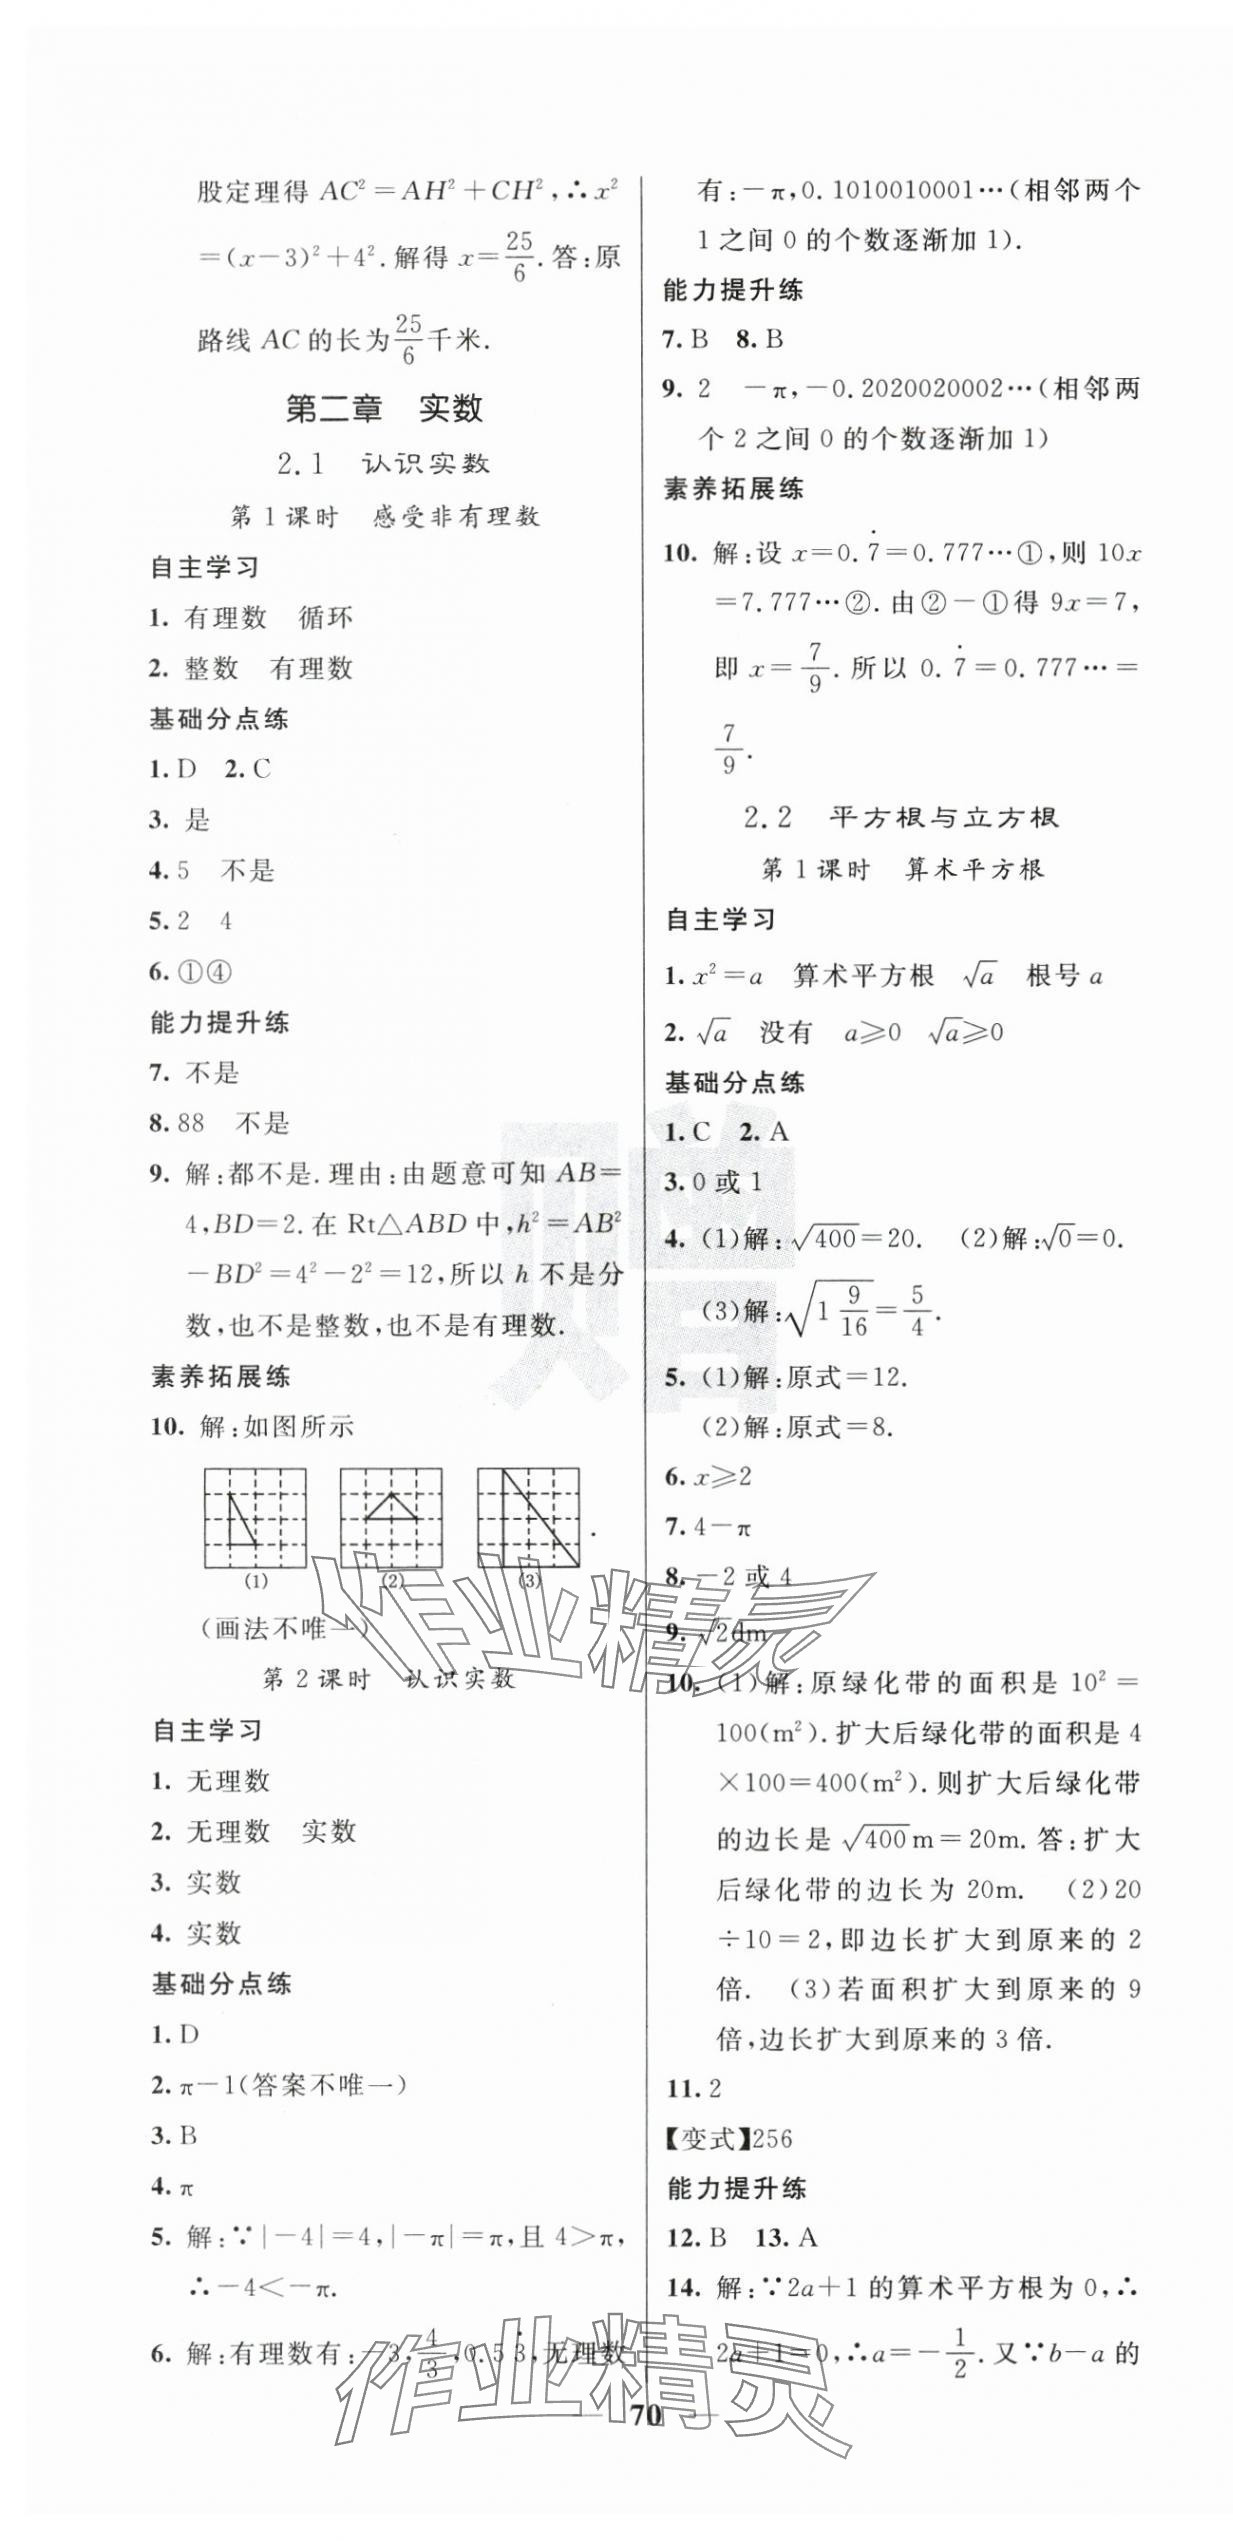 股定理得 AC²=AH²+CH²,∴x²
=(x-3)²+4².解得 x=25/6.答:原
路线 AC 的长为25/6千米.
第二章 实数
2.1 认识实数
第1课时 感受非有理数
自主学习
1. 有理数 循环
2. 整数 有理数
基础分点练
1. D 2. C
3. 是
4. 5 不是
5. 2 4
6. ①④
能力提升练
7. 不是
8. 88 不是
9. 解:都不是.理由:由题意可知 AB=
4,BD=2.在 Rt△ABD 中,h²=AB²
-BD²=4²-2²=12,所以 h 不是分
数,也不是整数,也不是有理数.
素养拓展练
10. 解:如图所示
(1) (2) (3) .
(画法不唯一)
第2课时 认识实数
自主学习
1. 无理数
2. 无理数 实数
3. 实数
4. 实数
基础分点练
1. D
2. π-1(答案不唯一)
3. B
4. π
5. 解:∵|-4|=4,|-π|=π,且 4>π,
∴-4<-π.
6. 解:有理数有:-3,4/3,0.53̇,无理数
有:-π,0.1010010001…(相邻两个
1 之间 0 的个数逐渐加 1).
能力提升练
7. B 8. B
9. 2 -π,-0.2020020002…(相邻两
个 2 之间 0 的个数逐渐加 1)
素养拓展练
10. 解:设 x=0.7̇=0.777…①,则 10x
=7.777…②.由②-①得 9x=7,
即 x=7/9.所以 0.7̇=0.777…=
7/9.
2.2 平方根与立方根
第1课时 算术平方根
自主学习
1. x²=a 算术平方根 √a 根号 a
2. √a 没有 a≥0 √a≥0
基础分点练
1. C 2. A
3. 0 或 1
4. (1)解:√400=20. (2)解:√0=0.
(3)解:√(1 9/16)=5/4.
5. (1)解:原式=12.
(2)解:原式=8.
6. x≥2
7. 4-π
8. -2 或 4
9. √2dm
10. (1)解:原绿化带的面积是 10²=
100(m²).扩大后绿化带的面积是 4
×100=400(m²).则扩大后绿化带
的边长是√400m=20m.答:扩大
后绿化带的边长为 20m. (2)20
÷10=2,即边长扩大到原来的 2
倍. (3)若面积扩大到原来的 9
倍,边长扩大到原来的 3 倍.
11. 2
【变式】256
能力提升练
12. B 13. A
14. 解:∵2a+1 的算术平方根为 0,∴
2a+1=0,∴a=-1/2.又∵b-a 的
70
赠
作业精灵
作业精灵